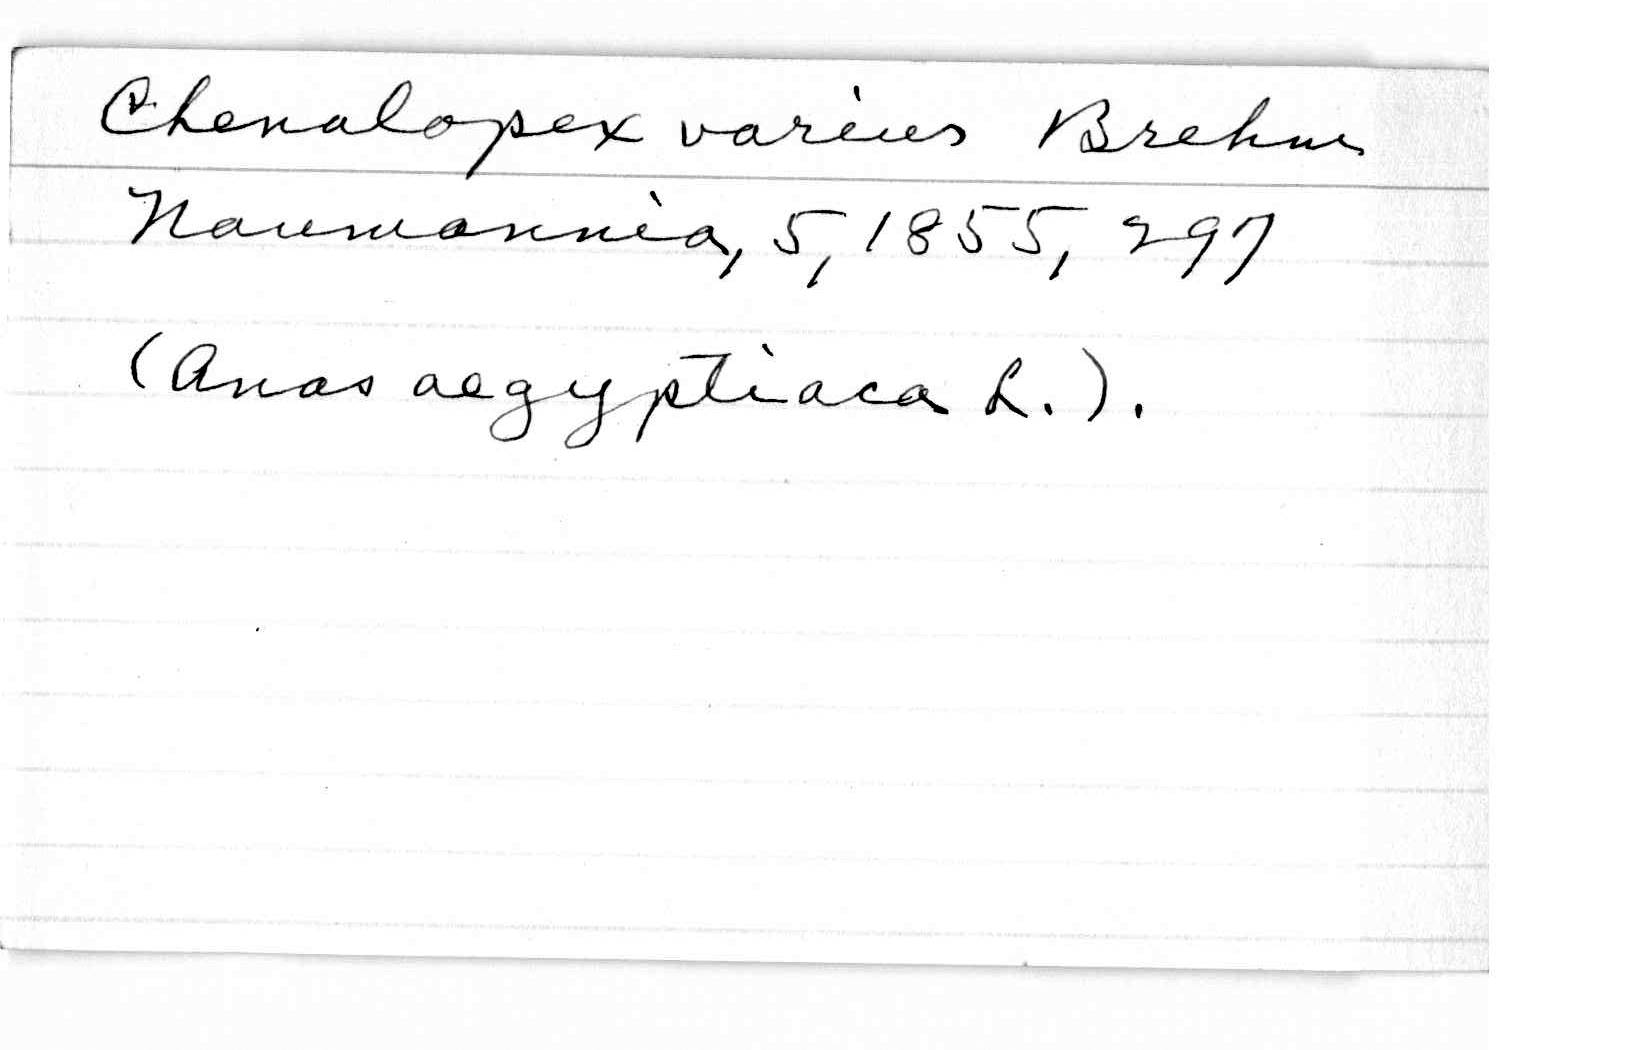 Chenalopex varius Brehm
Naumannia, 5, 1855, 297
(Anas aegyptiaca L.).